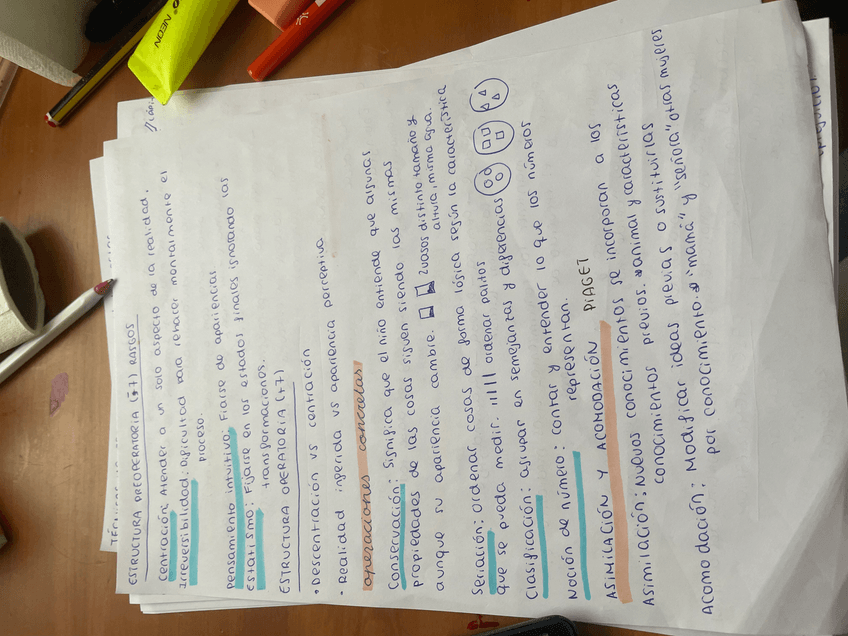 ESTRUCTURA PREOPERATORIA (-7) RASGOS
Centración: Atender a un solo aspecto de la realidad.
Irreversibilidad: Dificultad para rehacer mentalmente el
proceso.
Pensamiento intuitivo: Fiarse de apariencias
Estatismo: Fijarse en los estados finales ignorando las
transformaciones.
ESTRUCTURA OPERATORIA (+7)
• Descentración vs centración
- Realidad inferida vs apariencia perceptiva
operaciones concretas
Conservación: Significa que el niño entiende que algunas
propiedades de las cosas siguen siendo las mismas
aunque su apariencia cambie. 2 vasos distinto tamaño y
altura, misma agua.
Seriación: ordenar cosas de forma lógica según la característica
que se pueda medir. ordenar palitos
Clasificación: agrupar en semejanzas y diferencias
Noción de número: contar y entender lo que los números
representan.
ASIMILACIÓN Y ACOMODACIÓN PIAGET
Asimilación: Nuevos conocimientos se incorporan a los
conocimientos previos. animal y características
Acomodación: Modificar ideas previas o sustituirlas
por conocimiento. "mamá" y "señora" otras mujeres
NEON